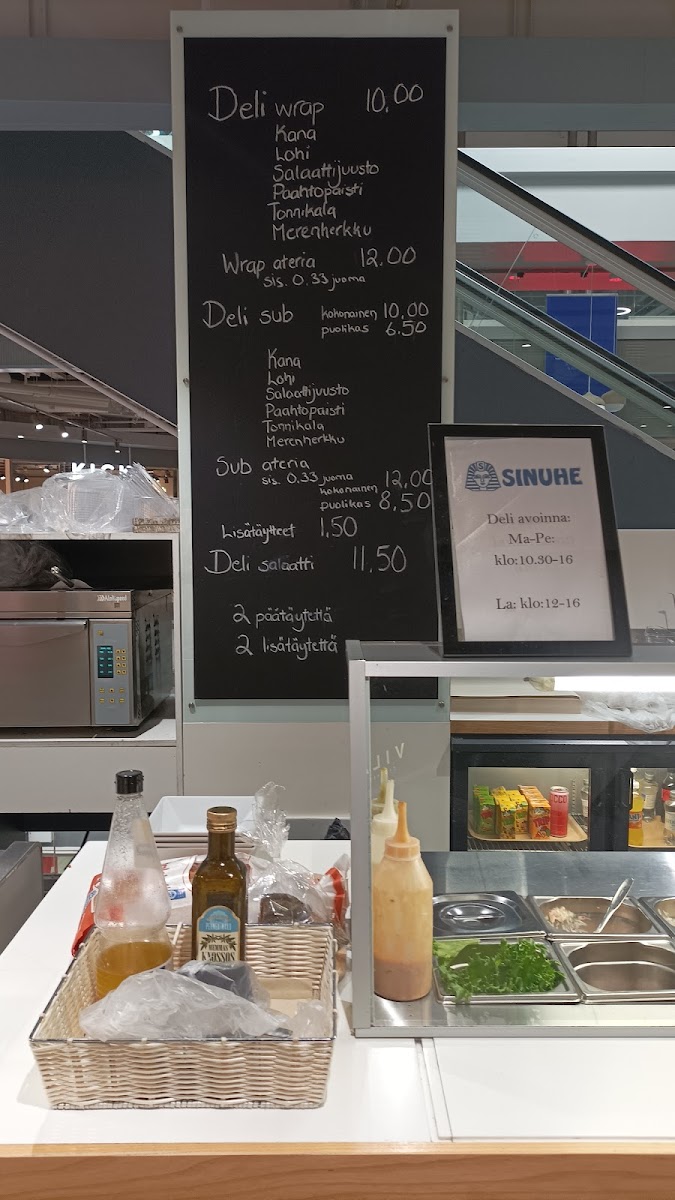 Deli wrap 10.00
Kana
Lohi
Salaattijuusto
Paahtopaisti
Tonnikala
Merenherkku
Wrap ateria 12.00
sis. 0.33 juoma
Deli sub kokonainen 10.00
puolikas 6.50
Kana
Lohi
Salaattijuusto
Paahtopaisti
Tonnikala
Merenherkku
Sub ateria
sis. 0.33 juoma 12.00
kokonainen
puolikas 8.50
Lisätäytteet 1.50
Deli salaatti 11.50
2 päätäytettä
2 lisätäytettä
SINUHE
Deli avoinna:
Ma-Pe:
klo:10.30-16
La: klo:12-16